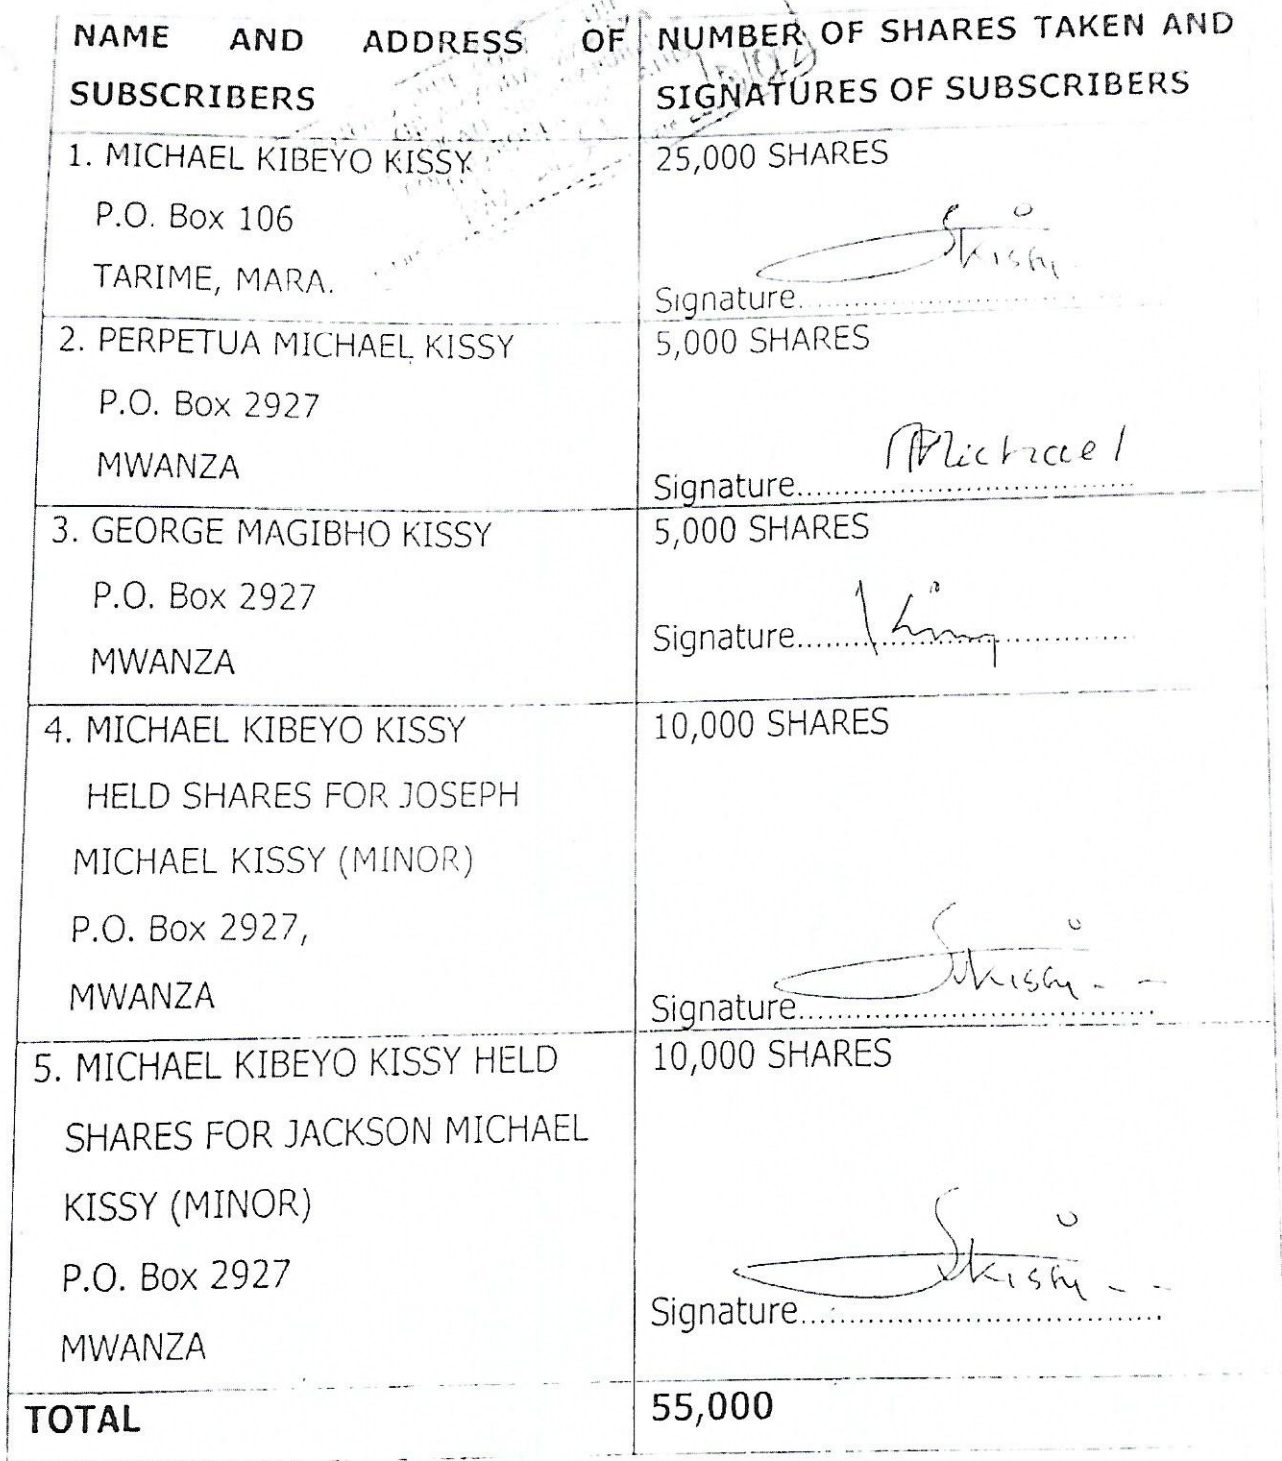 NAME AND ADDRESS OF SUBSCRIBERS
NUMBER OF SHARES TAKEN AND SIGNATURES OF SUBSCRIBERS
1. MICHAEL KIBEYO KISSY
P.O. Box 106
TARIME, MARA.
25,000 SHARES
Signature
2. PERPETUA MICHAEL KISSY
P.O. Box 2927
MWANZA
5,000 SHARES
Signature
3. GEORGE MAGIBHO KISSY
P.O. Box 2927
MWANZA
5,000 SHARES
Signature
4. MICHAEL KIBEYO KISSY
HELD SHARES FOR JOSEPH
MICHAEL KISSY (MINOR)
P.O. Box 2927,
MWANZA
10,000 SHARES
Signature
5. MICHAEL KIBEYO KISSY HELD
SHARES FOR JACKSON MICHAEL
KISSY (MINOR)
P.O. Box 2927
MWANZA
10,000 SHARES
Signature
TOTAL
55,000